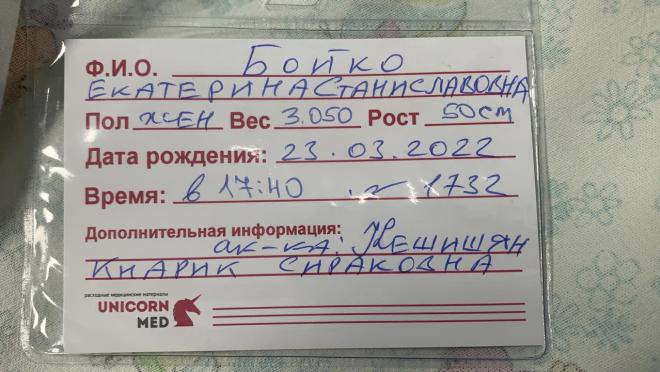 Ф.И.О. БОЙКО
ЕКАТЕРИНА СТАНИСЛАВОВНА
Пол ЖЕН Вес 3.050 Рост 50см
Дата рождения: 23.03.2022
Время: в 17:40 ~ 1732
Дополнительная информация:
ак-ка: КЕШИШЯН
КНАРИК СИРАКОВНА
расходные медицинские материалы
UNICORN
MED